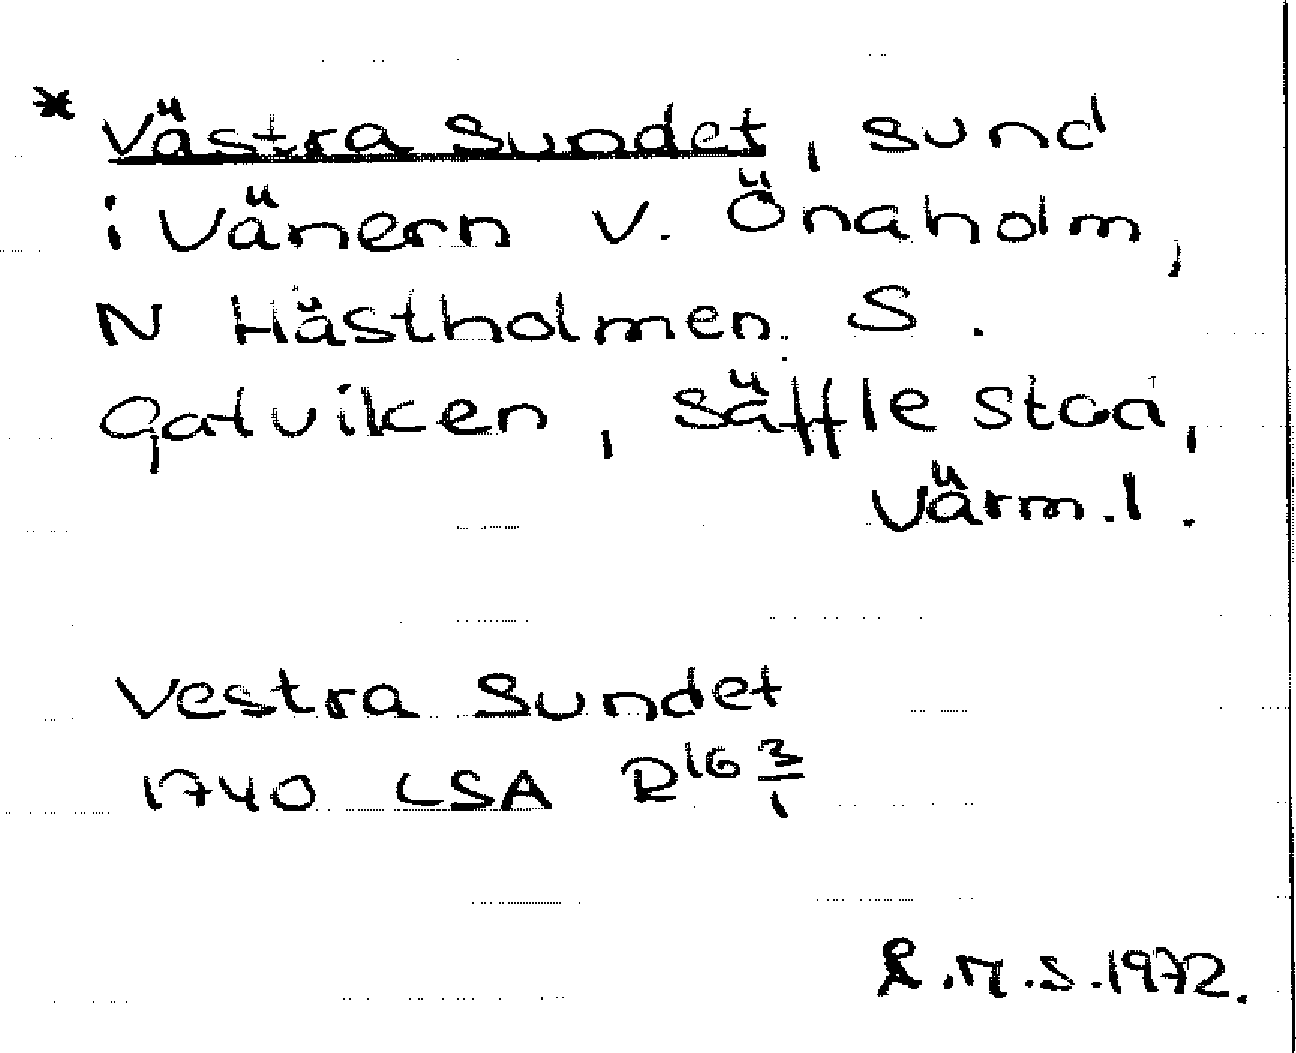 * Västra Sundet, sund
i Vänern v. Önaholm,
N Hästholmen. S.
Galviken, Säffle stad,
Värm.l.
Vestra Sundet
1740 LSA R16 3/1
R.M.S.1972.